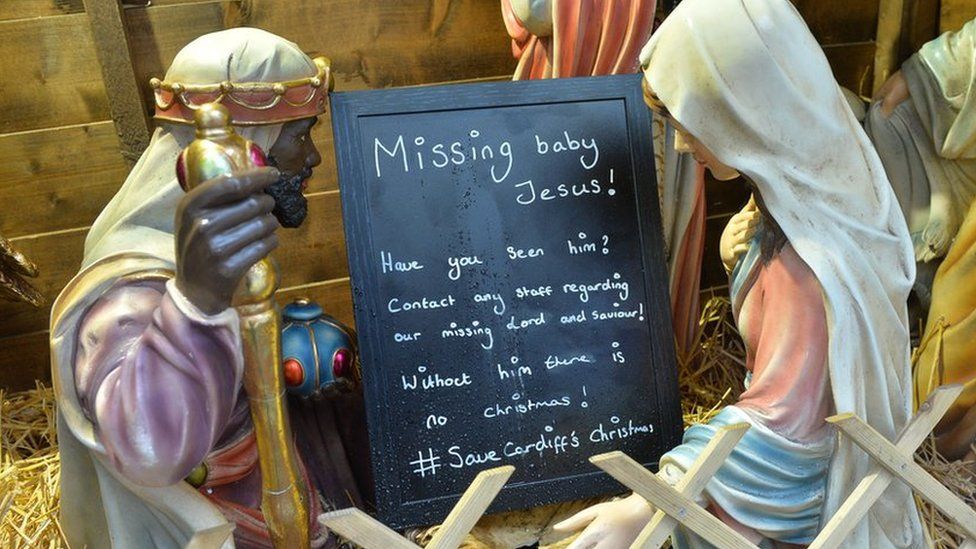 Missing baby
Jesus!
Have you seen him?
Contact any staff regarding
our missing Lord and saviour!
Without him there is
no christmas!
#Save Cardiff's Christmas